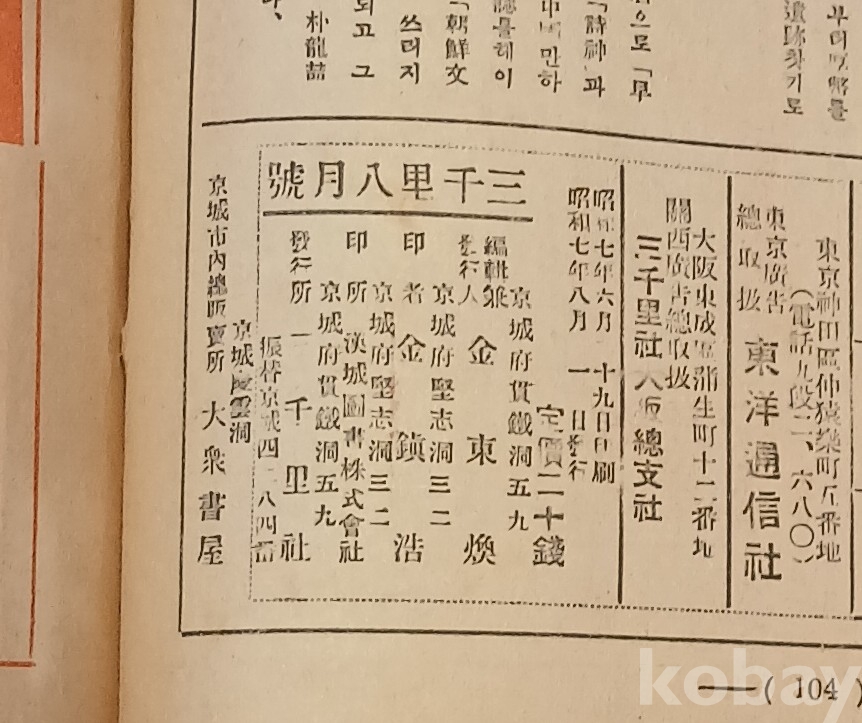 부터
遺跡찻기로
으로「早
「詩神」과
만하
誌를헤이
「朝鮮文
쓰러지
되고 그
朴龍喆
東京神田區仲猿樂町五番地
(電話九段二、六八〇)
東京廣告
總取扱
東洋通信社
大阪東成區蒲生町十二番地
關西廣告總取扱
三千里社大阪總支社
昭和七年六月 十九日印刷
昭和七年八月 一日發行
定價二十錢
三千里八月號
京城府貫鐵洞五九
編輯兼
發行人 金東煥
京城府堅志洞三二
印者 金鎭浩
京城府堅志洞三二
印所 漢城圖書株式會社
京城府貫鐵洞五九
發行所 三千里社
振替京城四二八四番
京城慶雲洞
京城市內總販賣所 大衆書屋
(104)
kobay